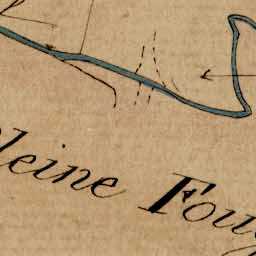 leine Foug